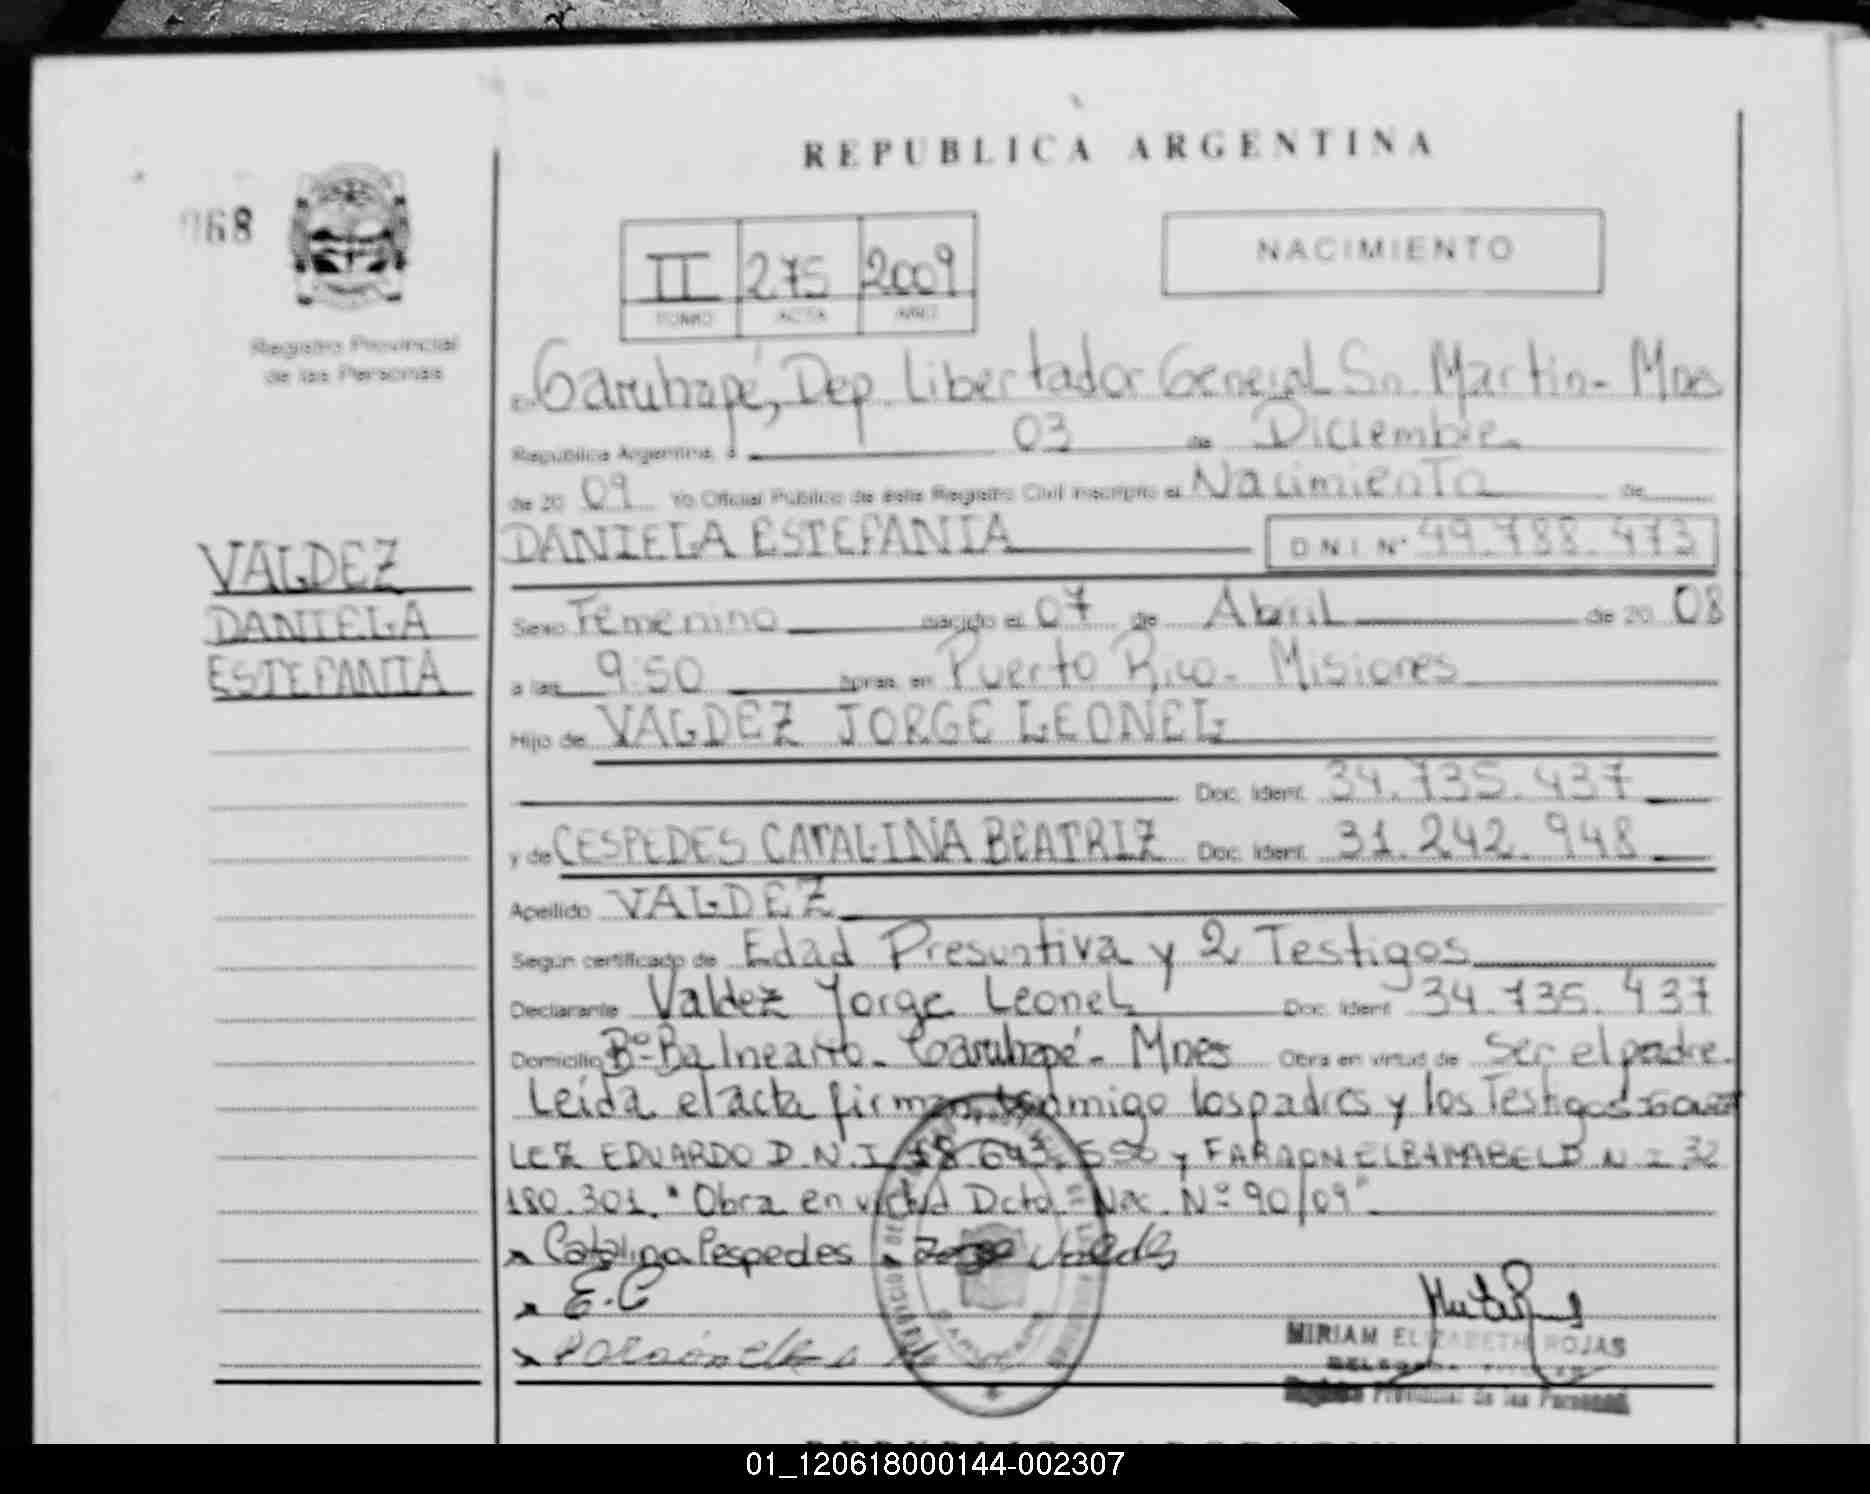 REPUBLICA ARGENTINA
068
NACIMIENTO
II 275 2009
TOMO ACTA AÑO
Registro Provincial
de las Personas
en Garuhapé, Dep. Libertador General Sn. Martin- Mnes
República Argentina, a 03 de Diciembre
de 20 09 Yo Oficial Público de éste Registro Civil inscripto el Nacimiento de
DANIELA ESTEFANIA D.N.I. Nº 49.788.473
VALDEZ
DANIELA
ESTEFANIA
Sexo Femenino nacido el 07 de Abril de 20 08
a las 9:50 horas en Puerto Rico- Misiones
Hijo de VALDEZ JORGE LEONEL
Doc. Ident. 34.735.437
y de CESPEDES CATALINA BEATRIZ Doc. Ident. 31.242.948
Apellido VALDEZ
Según certificado de Edad Presuntiva y 2 Testigos
Declarante Valdez Jorge Leonel Doc. Ident. 34.735.437
Domicilio Bº-Balneario- Garuhapé- Mnes Obra en virtud de Ser el padre.
Leída el acta firman conmigo los padres y los Testigos
LEZ EDUARDO D.N.I. y FARAON ELBA MABEL D.N.I 32
180.301. "Obra en virtud Dcto = Nac. Nº 90/09"
x Catalina Cespedes x Jorge Valdez
x E.C
x
MIRIAM ELIZABETH ROJAS
Registro Provincial de las Personas
01_120618000144-002307